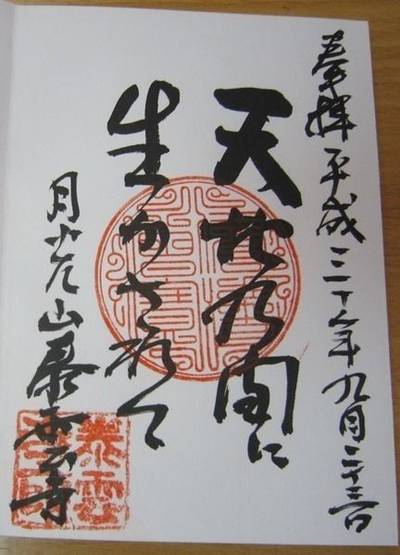 奉拝 平成二十年九月二十三日
天地乃間に
生かされて
月光山泰雲寺